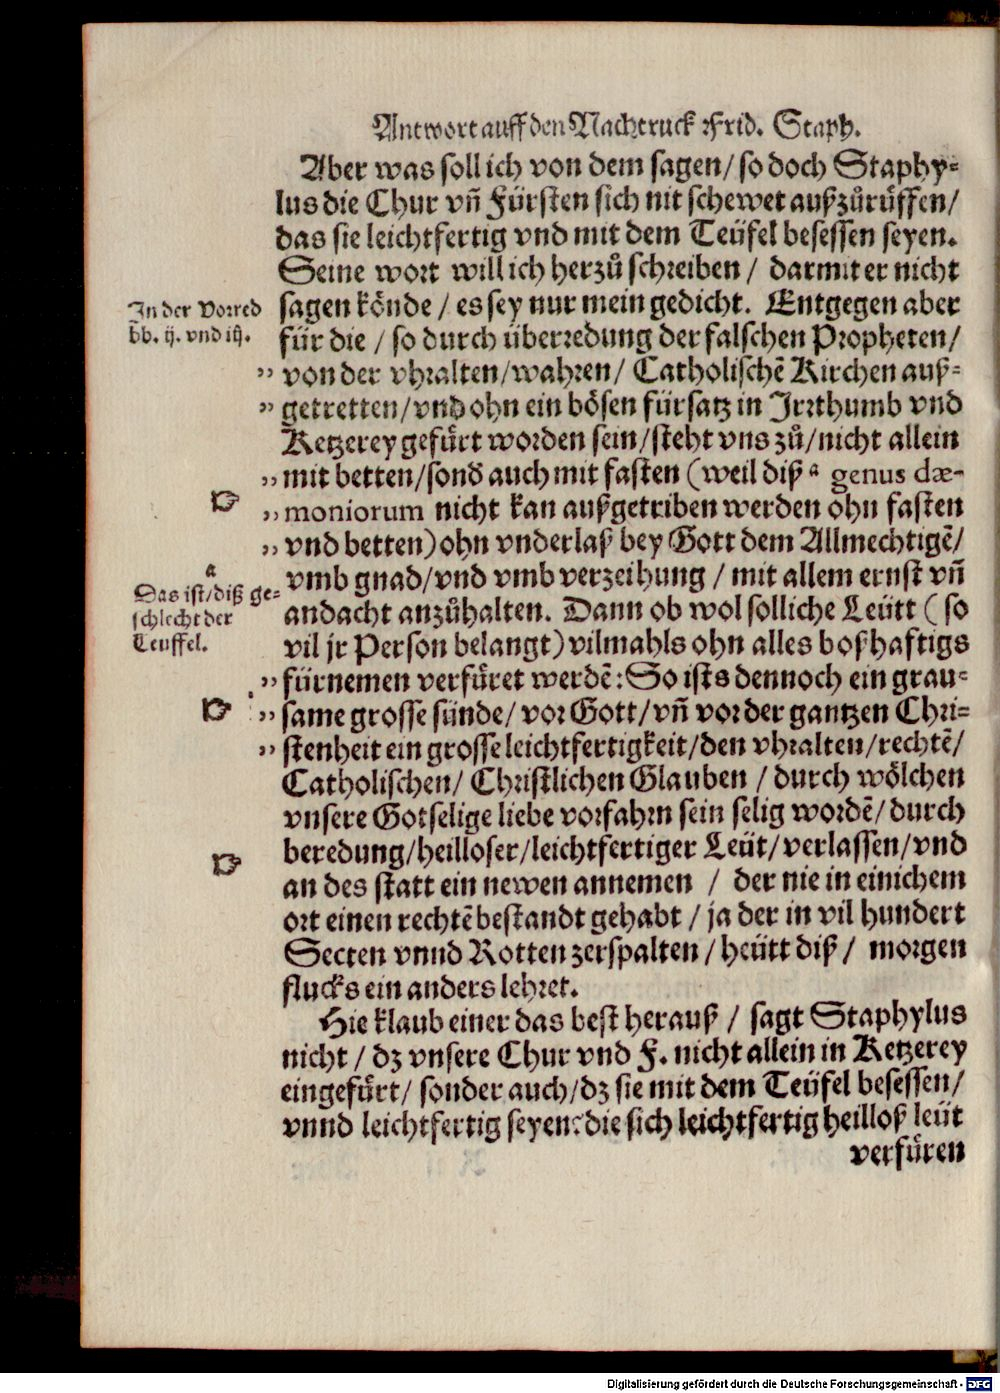 Antwort auff den Nachtruck Frid. Staph.
Aber was soll ich von dem sagen/ so doch Staphy-
lus die Chur vñ Fürsten sich nit schewet außzůrüffen/
das sie leichtfertig vnd mit dem Teüfel besessen seyen.
Seine wort will ich herzů schreiben / darmit er nicht
sagen könde / es sey nur mein gedicht. Entgegen aber
In der Vorred
bb. ij. vnd iij.
für die / so durch überredung der falschen Propheten/
„ von der vhralten/wahren/ Catholischẽ Kirchen auß-
„ getretten/vnd ohn ein bösen fürsatz in Irrthumb vnd
Ketzerey gefürt worden sein/steht vns zů/nicht allein
„ mit betten/sond auch mit fasten (weil diß a genus dæ-
„ moniorum nicht kan außgetriben werden ohn fasten
„ vnd betten) ohn vnderlaß bey Gott dem Allmechtigẽ/
vmb gnad/vnd vmb verzeihung / mit allem ernst vñ
a
Das ist/diß ge-
schlecht der
Teuffel.
andacht anzůhalten. Dann ob wol solliche Leütt ( so
vil jr Person belangt) vilmahls ohn alles boßhaftigs
„ fürnemen verfüret werdẽ: So ists dennoch ein grau-
„ same grosse sünde/ vor Gott/vñ vor der gantzen Chri-
„ stenheit ein grosse leichtfertigkeit/den vhralten/rechtẽ/
Catholischen/ Christlichen Glauben / durch wölchen
vnsere Gotselige liebe vorfahrn sein selig wordẽ/ durch
beredung/heilloser/leichtfertiger Leüt/ verlassen/vnd
an des statt ein newen annemen / der nie in einichem
ort einen rechtẽ bestandt gehabt / ja der in vil hundert
Secten vnnd Rotten zerspalten / heütt diß / morgen
flucks ein anders lehret.
Hie klaub einer das best herauß / sagt Staphylus
nicht / dz vnsere Chur vnd F. nicht allein in Ketzerey
eingefürt/ sonder auch/dz sie mit dem Teüfel besessen/
vnnd leichtfertig seyen: die sich leichtfertig heilloß leüt
verfüren
Digitalisierung gefördert durch die Deutsche Forschungsgemeinschaft - DFG